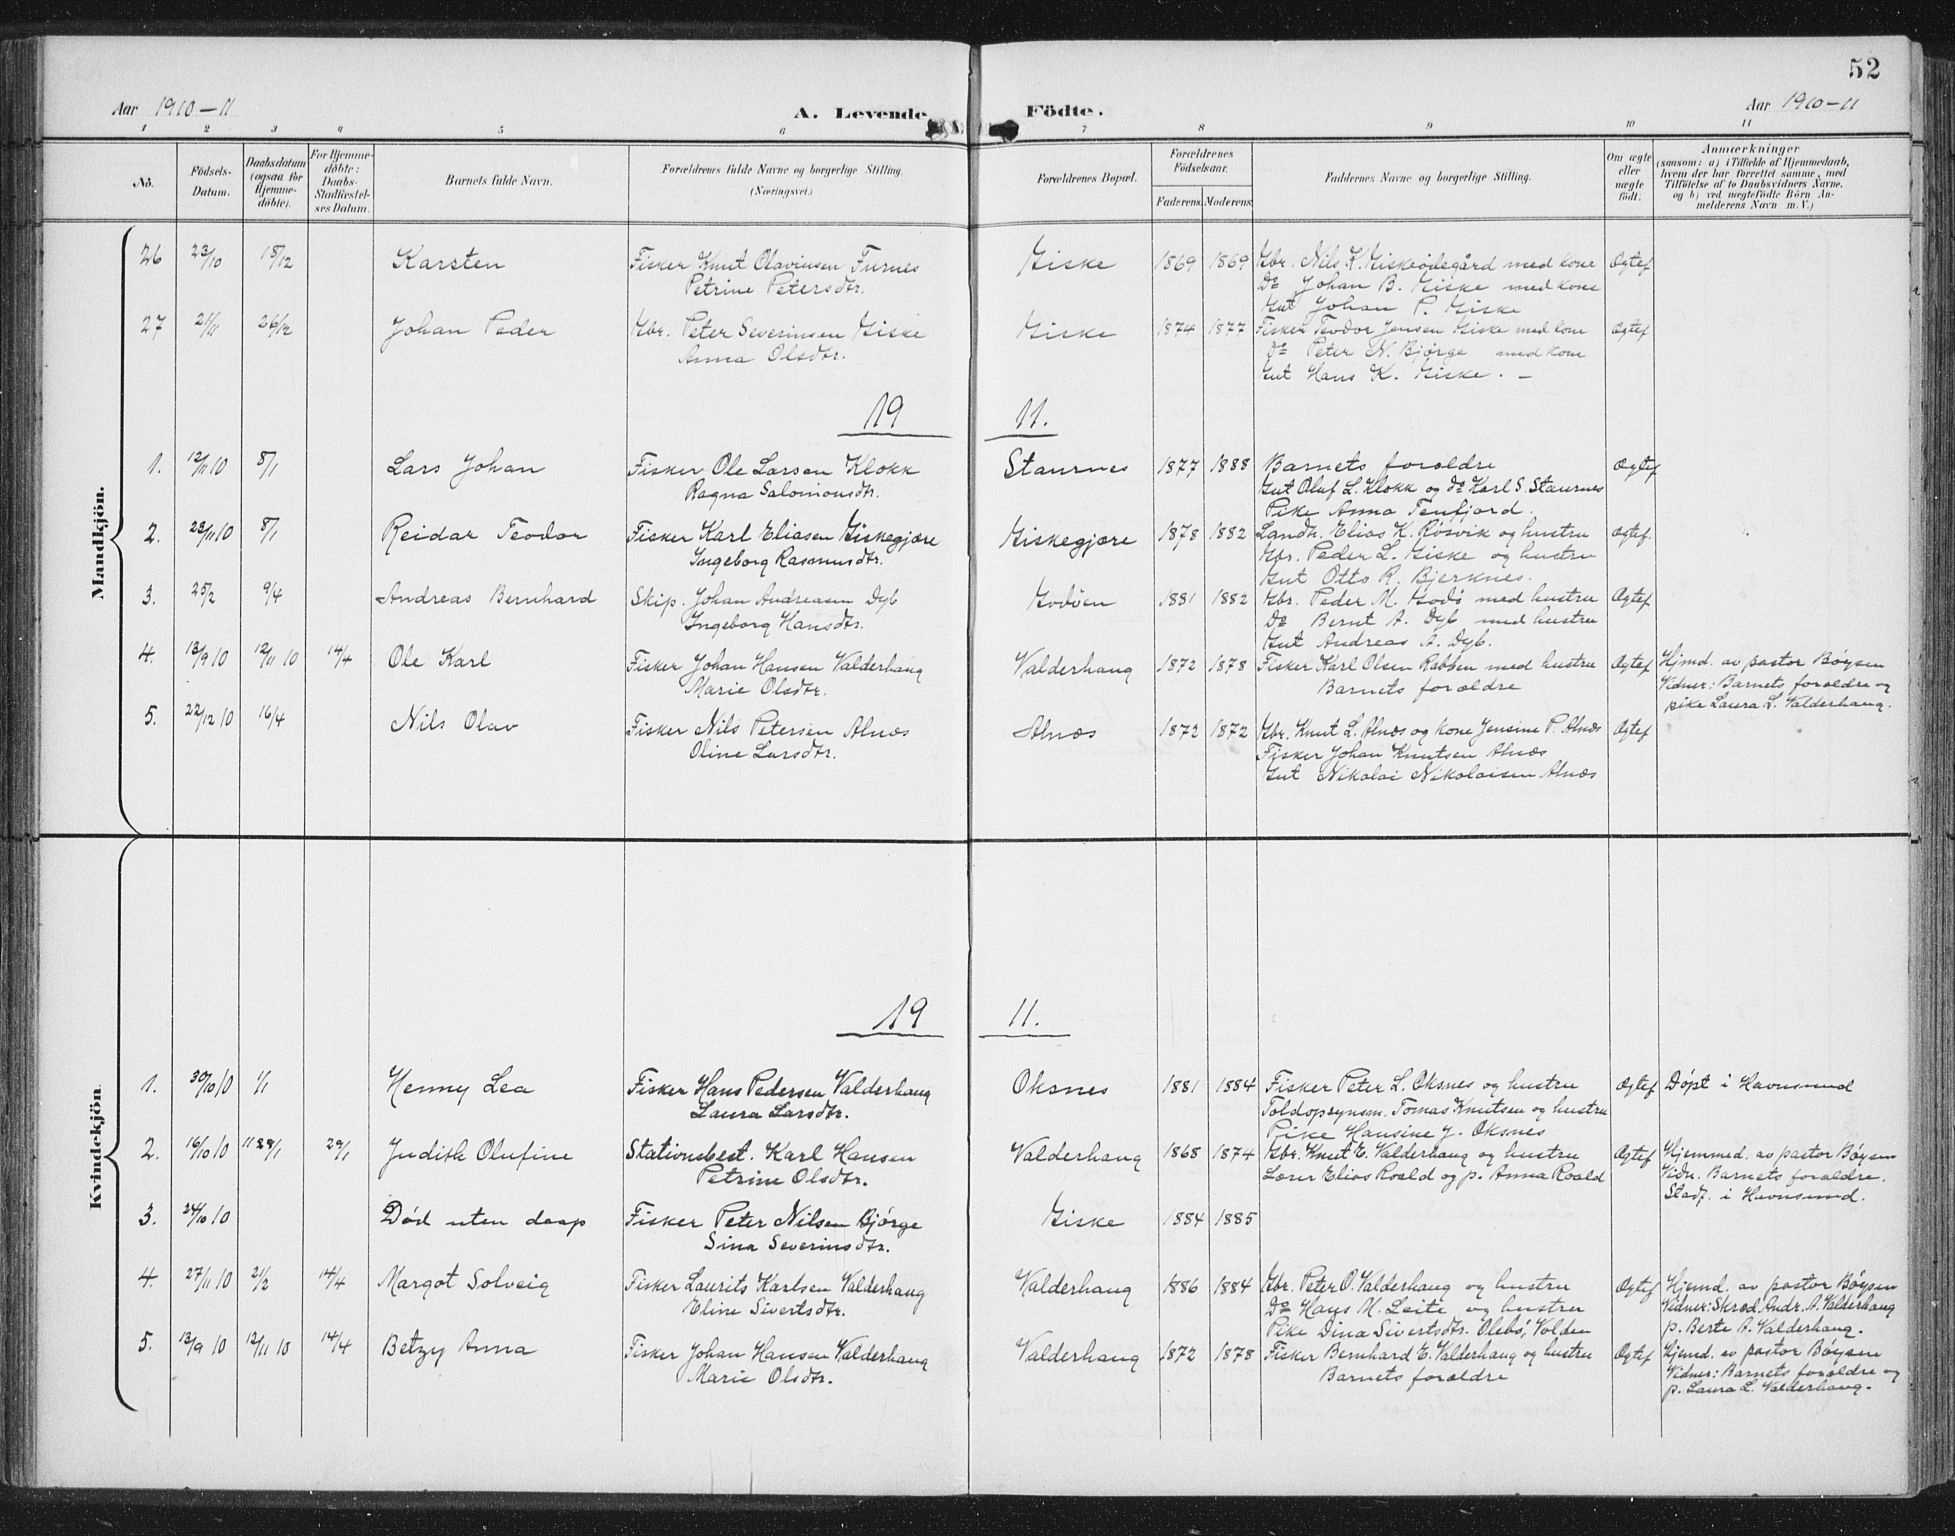 52
Aar 1910-11
A. Levende Födte.
Aar 1910-11
1 2 3 4 5 6 7 8 9 10 11
No.
Födsels-Datum.
Daabsdatum (ogsaa for Hjemme-döbte).
For Hjemme-döbte: Daabs-Stadfestel-ses Datum.
Barnets fulde Navn.
Forældrenes fulde Navne og borgerlige Stilling.
(Næringsvei.)
Forældrenes Bopæl.
Forældrenes Födselsaar.
Faderens. Moderens.
Faddernes Navne og borgerlige Stilling.
Om ægte eller uægte födt.
Anmærkninger
(saasom: a) i Tilfælde af Hjemmedaab,
hvem der har forrettet samme, med
Tilföielse af to Daabsvidners Navne,
og b) ved uægtefödte Börn An-
melderens Navn m. V.)
Mandkjön.
26 23/10 18/12 Karsten Fisker Knut Olavinsen Furnes Giske 1869 1869 Gbr. Nils K. Giskeødegård med kone Ogtef
Petrine Petersdtr. Do Johan B. Giske med kone
Gut Johan P. Giske
27 21/11 26/12 Johan Peder Gbr. Peter Severinsen Giske Giske 1874 1877 Fisker Teodor Jensen Giske med kone Ogtef
Anna Olsdtr. Do Peter N. Bjørge med kone
Gut Hans K. Giske. —
19 11.
1. 12/11 10 8/1 Lars Johan Fisker Ole Larsen Klokk Staurnes 1877 1888 Barnets foroldre Ogtef
Ragna Salomonsdtr. Gut Oluf L. Klokk og do Karl S. Staurnes
Pike Anna Tenfjord.
2. 28/11 10 8/1 Reidar Teodor Fisker Karl Eliasen Giskegjære Giskegjære 1878 1882 Landh. Elias K. Røsvik og hustru Ogtef.
Ingeborg Rasmusdtr. Gbr. Peder L. Giske og hustru
Gut Otto R. Bjerknes.
3. 25/2 9/4 Andreas Bernhard Skip. Johan Andreasen Dyb Godøen 1881 1882 Gbr. Peder M. Godø med hustru Ogtef
Ingeborg Hansdtr. Do Bernt A. Dyb med hustru
Gut Andreas A. Dyb.
4. 13/9 10 12/11 10 14/4 Ole Karl Fisker Johan Hansen Valderhaug Valderhaug 1872 1878 Fisker Karl Olsen Rabben med hustru Ogtef Hjmd. av pastor Bøysen
Marie Olsdtr. Barnets foroldre Vidner: Barnets foroldre og
pike Laura L. Valderhaug.
5. 22/12 10 16/4 Nils Olav Fisker Nils Petersen Alnæs Alnæs 1872 1872 Gbr. Knut L. Alnæs og kone Jensine P. Alnæs Ogtef
Oline Larsdtr. Fisker Johan Knutsen Alnæs
Gut Nikolai Nikolaisen Alnæs
Kvindekjön
19 11.
1. 30/10 10 1/1 Henny Lea Fisker Hans Pedersen Valderhaug Oksnes 1881 1884 Fisker Peter L. Oksnes og hustru Ogtef Døpt i Havnsund
Laura Larsdtr. Toldopsynsm. Tomas Knutsen og hustru
Pike Hansine J. Oksnes
2. 16/10 10 29/1 Judith Olufine Stationsbest. Karl Hansen Valderhaug 1868 1874 Gbr. Knut E. Valderhaug og hustru Ogtef Hjemmed. av pastor Bøysen
Petrine Olsdtr. Lærer Elias Roald og p. Anna Roald Vidn. Barnets foroldre.
Stadf. i Havnsund.
3. 24/10 10 Død uten daap Fisker Peter Nilsen Bjørge Giske 1884 1885
Sina Severinsdtr.
4. 27/11 10 21/2 14/4 Margot Solveig Fisker Laurits Karlsen Valderhaug Valderhaug 1886 1884 Gbr. Peter O. Valderhaug og hustru Ogtef Hjemd. av pastor Bøysen
Eline Sivertsdtr. Do Hans M. Leite og hustru Vidner: Skræd. Andr. A. Valderhaug
Pike Dina Sivertsdtr. Olebø, Volden p. Berte A. Valderhaug.
5. 13/9 10 12/11 10 14/4 Betzy Anna Fisker Johan Hansen Valderhaug Valderhaug 1872 1878 Fisker Bernhard E. Valderhaug og hustru Ogtef Hjemd. av pastor Bøysen
Marie Olsdtr. Barnets foroldre Vidner: Barnets foroldre og
p. Laura L. Valderhaug.